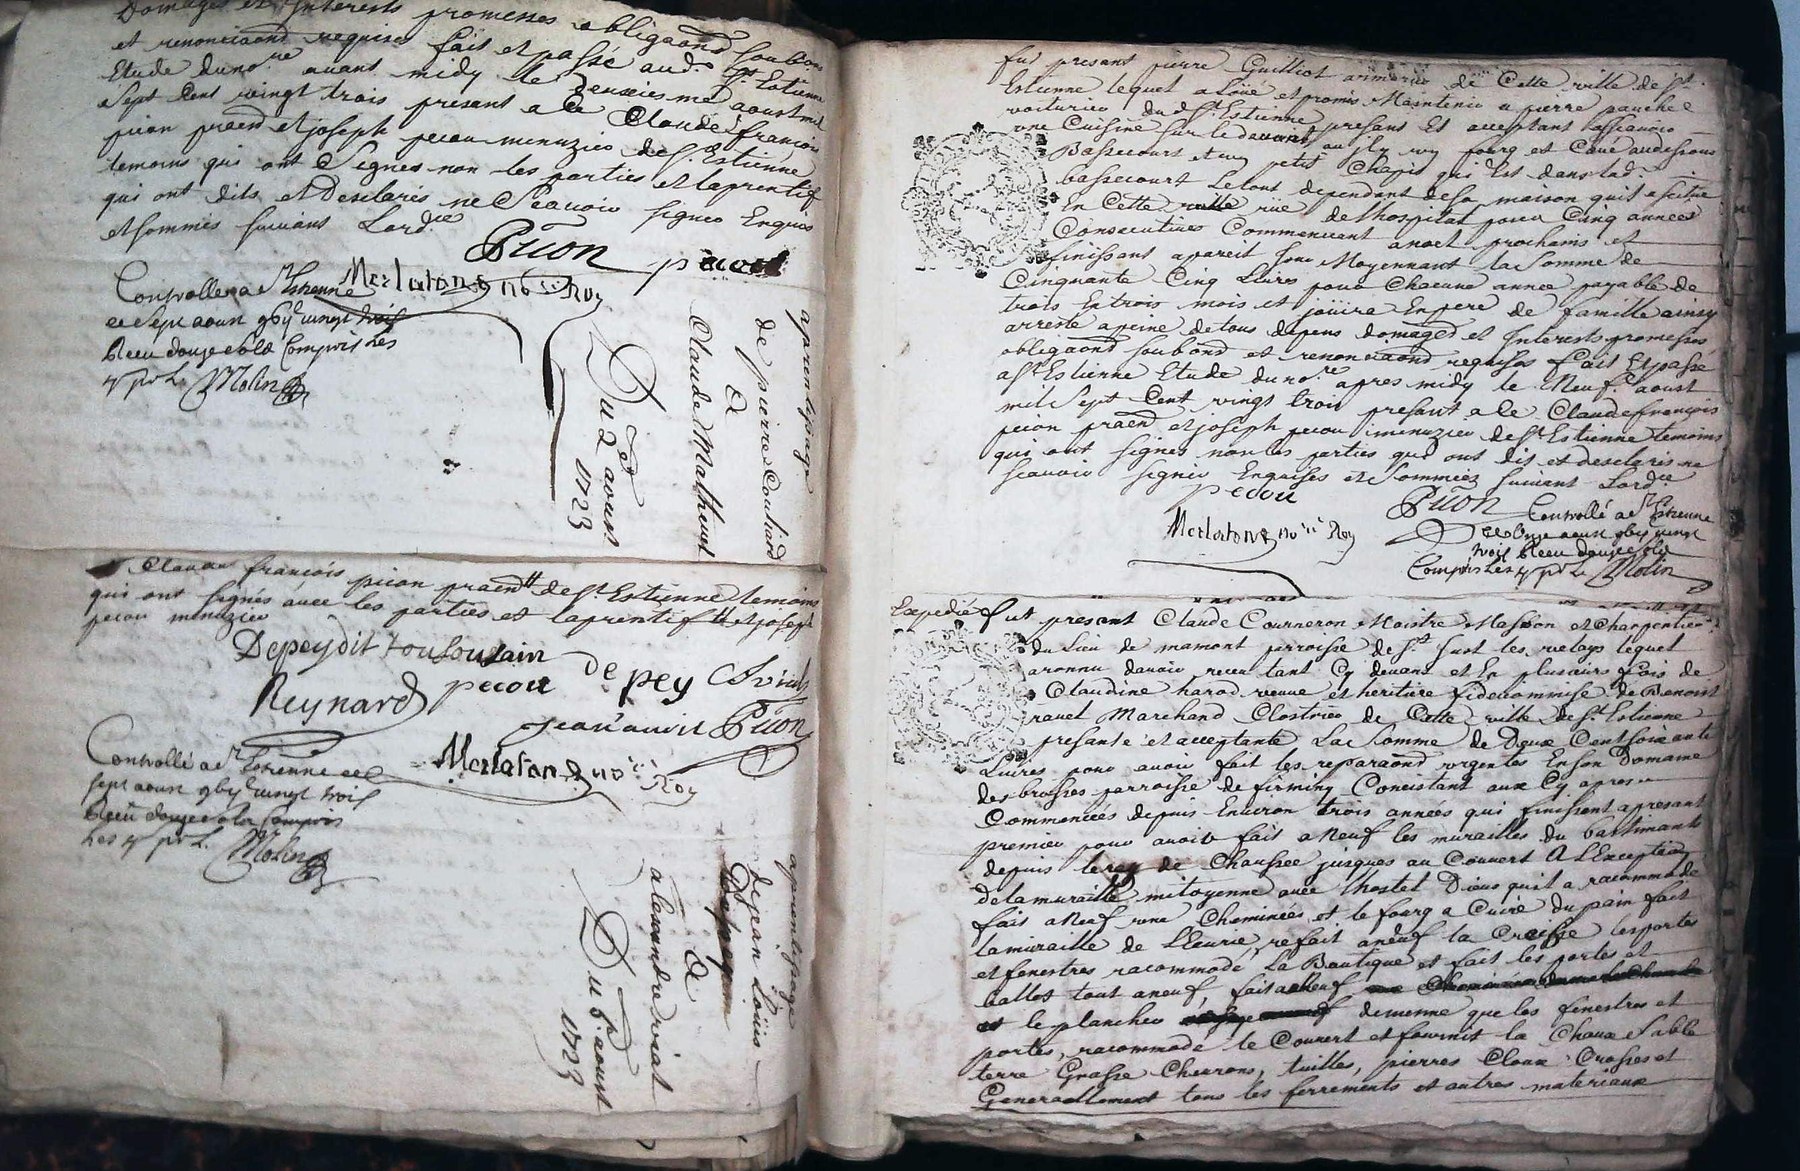 Domages et Interests promesses obligaond soubond
et renonciaond requises fait et passé aud. St Estienne
Etude du nore avant midy le deuxiesme aoust mil
sept Cent vingt trois presant a ce Claude françois
pion praend et joseph pecou menuzier de St Estienne
temoins qui ont Signes non les parties et laprentif
qui ont dits et desclarés ne Scavoir signer Enquis
et sommés suivant Lord.ce
Pion pecou
Merlaton no.re Roy
Controllé a St Estienne
ce sept aoust gbij vingt trois
Receu douze sols Compris les
Molin
aprentissage
de pierre Couliard
&
Claude Matheut
Du 2 aoust
1723
Claude françois pion praend de St Estienne temoins
qui ont signés avec les parties et laprentif et joseph
pecou menuzier
Depeydit toulousain
de pey
Reynard pecou
jean Pion
Merlaton no.re Roy
Controllé a St Estienne ce
sept aoust gbij vingt trois
Receu douze sols Compris
Les Molin
aprentissage
de jean Louis
&
alexandre viat
Du 6 aoust
1723
fut presant pierre Guilliot armurier de Cette ville de St
Estienne lequel a Loué et promis Maintenir a pierre
voiturier du d St Estienne presant Et acceptant assçavoir
une Cuisine sur le davant, au fourg et Cave audessous
Bassecourt et un petit Chapit qui Est dans lad.
bassecourt Le tout dependent de sa maison quil a scitue
En Cette ville rüe de lhospital pour Cinq années
Consecutives Commencent a noel prochains et
finissant a pareil jour Moyennant la Somme de
Cinquante Cinq Livres pour Chacune annee payable de
trois En trois mois et jouira En pere de famille ainsy
arresté a peine de tous depens domages et Interests promesses
obligaond soubond et renonciaond requises fait Et passé
a St Estienne Etude du nore apres midy le Neuf aoust
mil Sept Cent vingt trois presant a ce Claude françois
pion praend et joseph pecou menuzier de St Estienne temoins
qui ont signes non les parties qui ont dit et desclaré ne
scavoir signer Enquises et Sommées suivant Lord.ce
pecou Pion
Merlaton no.re Roy
Controllé a St Estienne
ce onze aoust gbij vingt
trois Receu douze sols
Compris Les Molin
Expedié
fut presant Claude Courneron Maistre Masson et Charpentier
du Lieu de mamont parroisse de St Just les velays lequel
a connu davoir receu tant Cy devant et En plusieurs fois de
Claudine harod veuve et heritiere fidecommise de Benoist
ravel Marchand Clostrier de Cette ville de St Estienne
presante et acceptante La Somme de Deux Cent soixante
Livres pour avoir fait les reparaond urgentes En son Domaine
des brosses parroisse de firminy Concistant aux Cy apres
Commencées depuis Environ trois années qui finissent apresant
premier pour avoir fait a Neuf les murailles du bastimants
depuis le rez de Chaussee jusques au Couvert A L'Exception
de la muraille mitoyenne avec l'hostel Dieu quil a racommodé
fait a Neuf une Cheminées et le fourg a Cuire du pain fait
la muraille de L'Ecurie, refait a neuf la Creisse les portes
et fenestres racommodé La Boutique et fait les portes et
tout a neuf, fait a neuf
et le plancher de mesme que les fenestres et
portes, racommodé le Couvert et fournit la Chaux Sable
terre Grasse Chevrons, tuilles, pierres Cloux Crosses et
Generallement tous les ferrements et autres materiaux